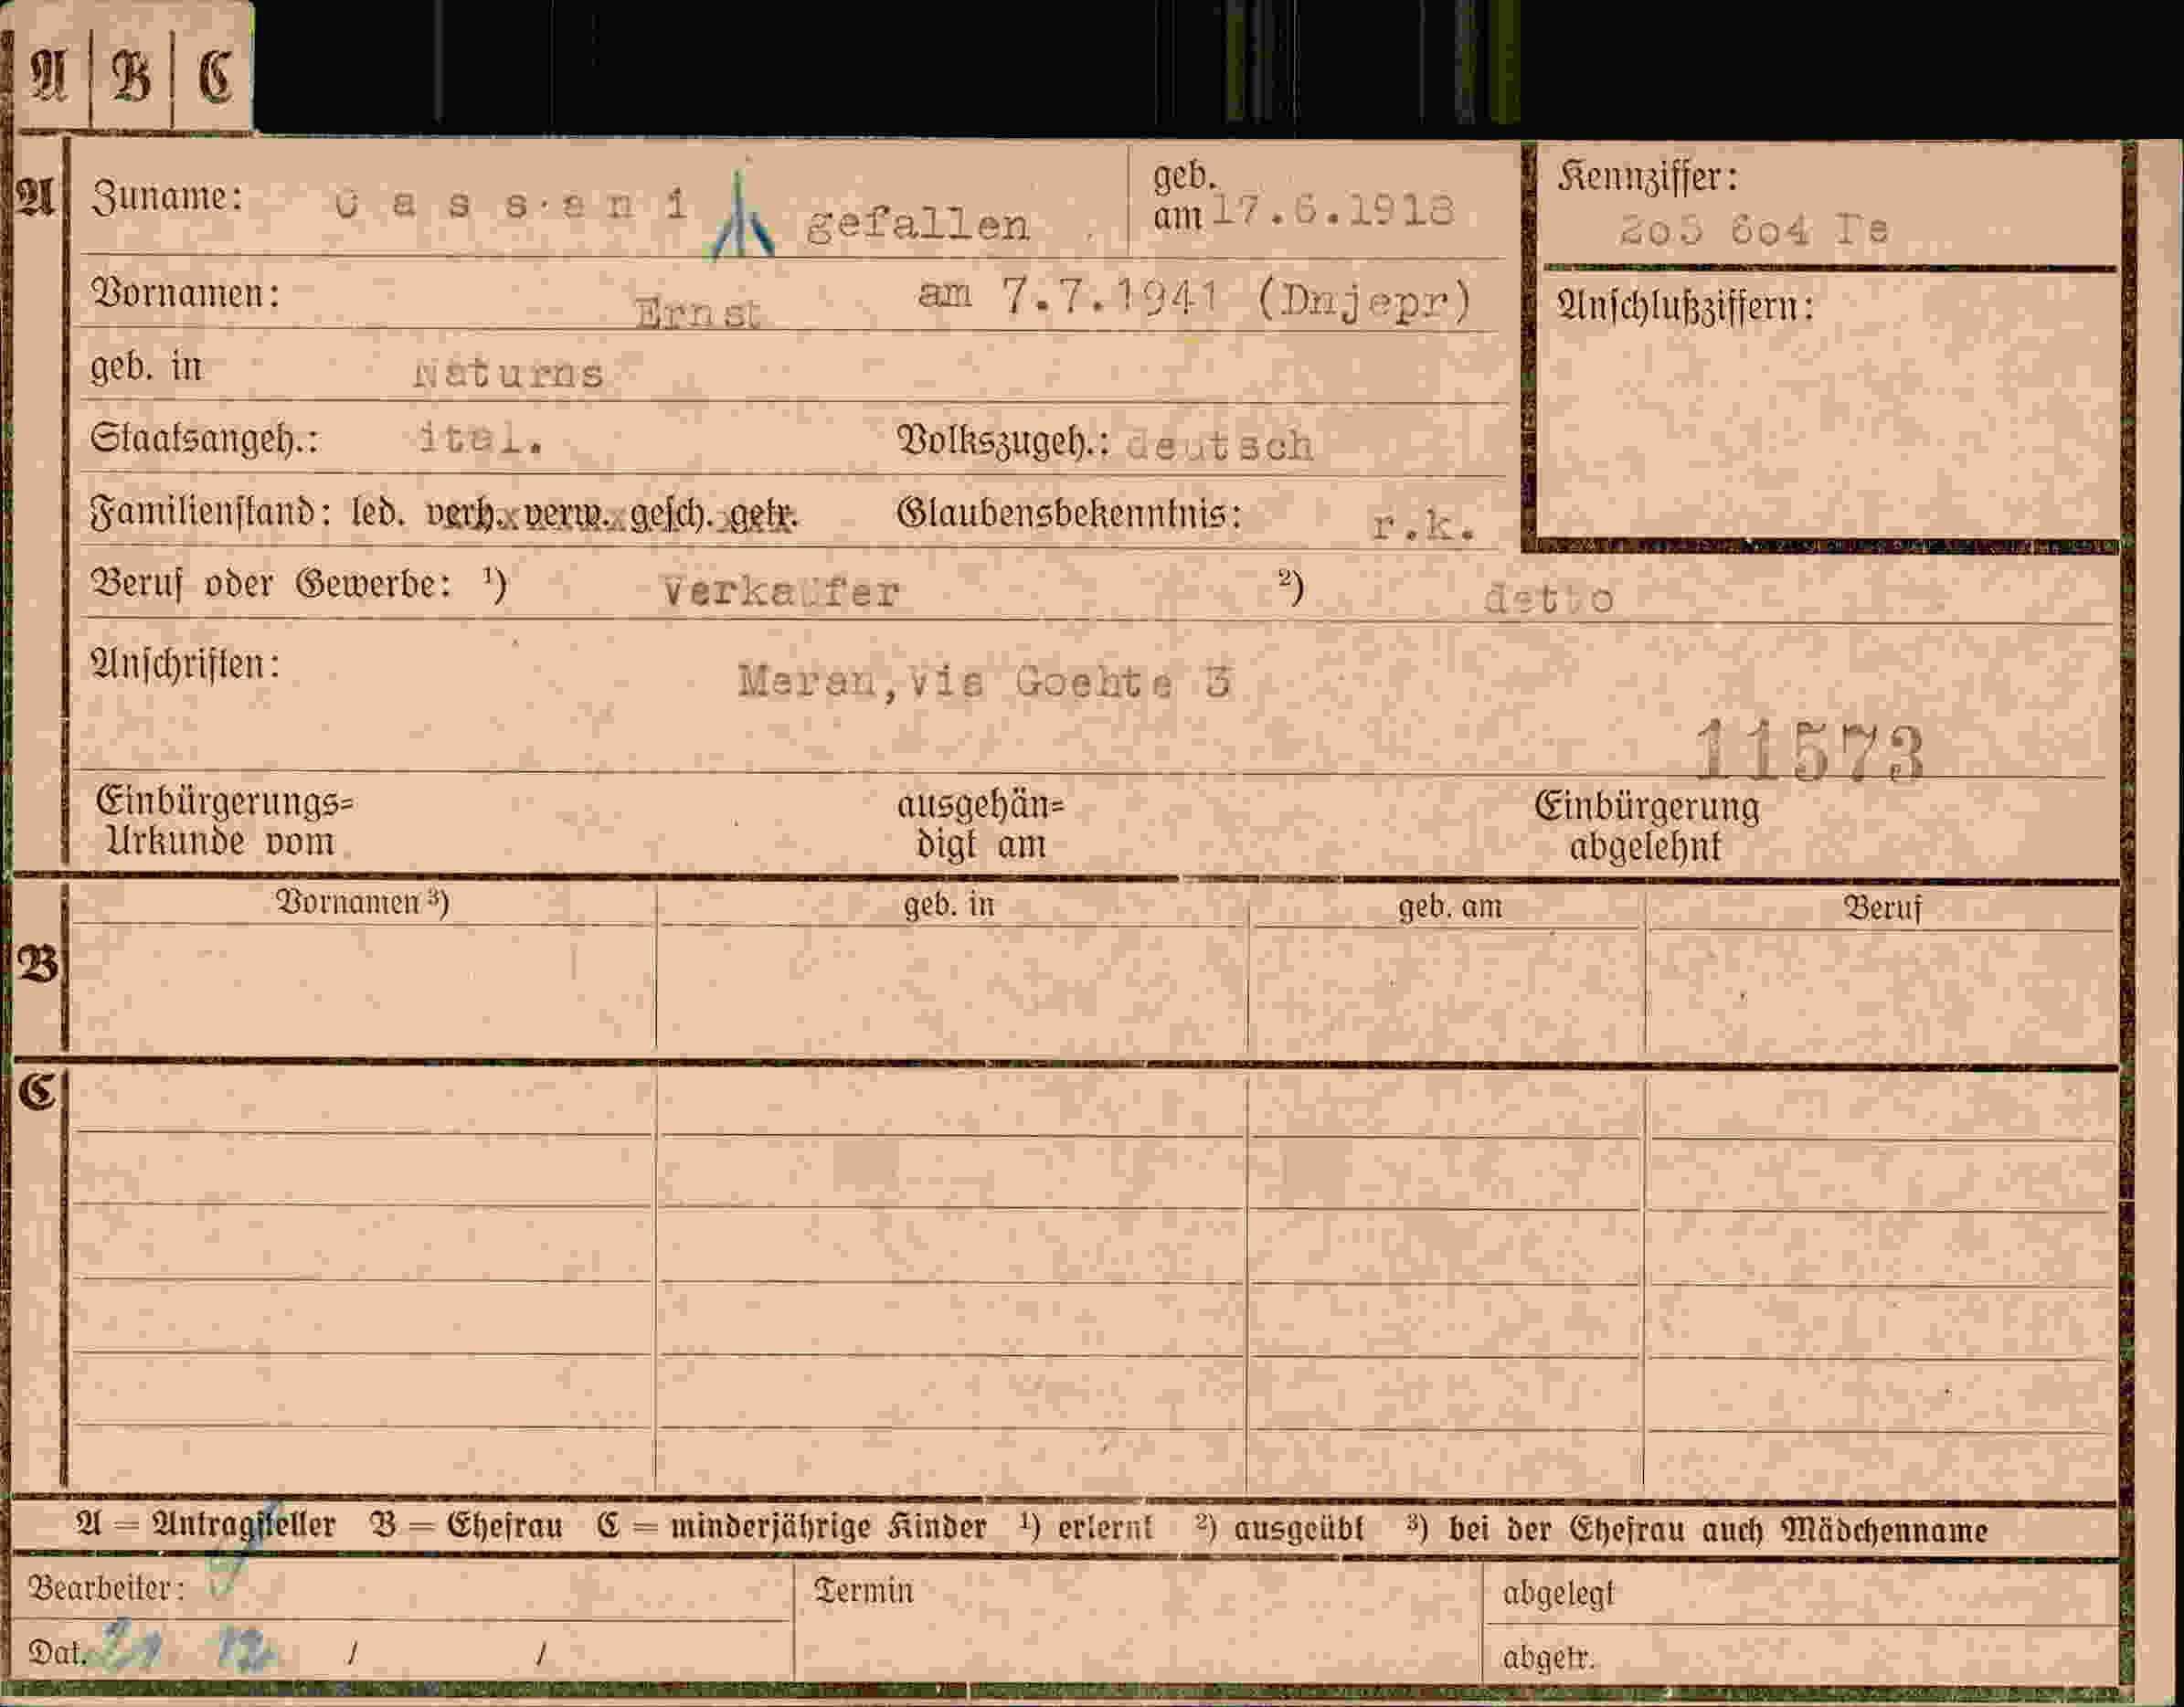 A B C
A Zuname: Cassani gefallen geb. am 17.6.1918 Kennziffer:
205 604 Te
Vornamen: Ernst am 7.7.1941 (Dnjepr) Anschlußziffern:
geb. in Naturns
Staatsangeh.: ital. Volkszugeh.: deutsch
Familienstand: led. verh. verw. gesch. getr. Glaubensbekenntnis: r.k.
Beruf oder Gewerbe: ¹) Verkaufer ²) detto
Anschriften: Meran, via Goehte 3
11573
Einbürgerungs= ausgehän= Einbürgerung
Urkunde vom digt am abgelehnt
Vornamen ³) geb. in geb. am Beruf
B
C
A = Antragsteller B = Ehefrau C = minderjährige Kinder ¹) erlernt ²) ausgeübt ³) bei der Ehefrau auch Mädchenname
Bearbeiter: Termin abgelegt
Dat. 21 12 / / abgetr.